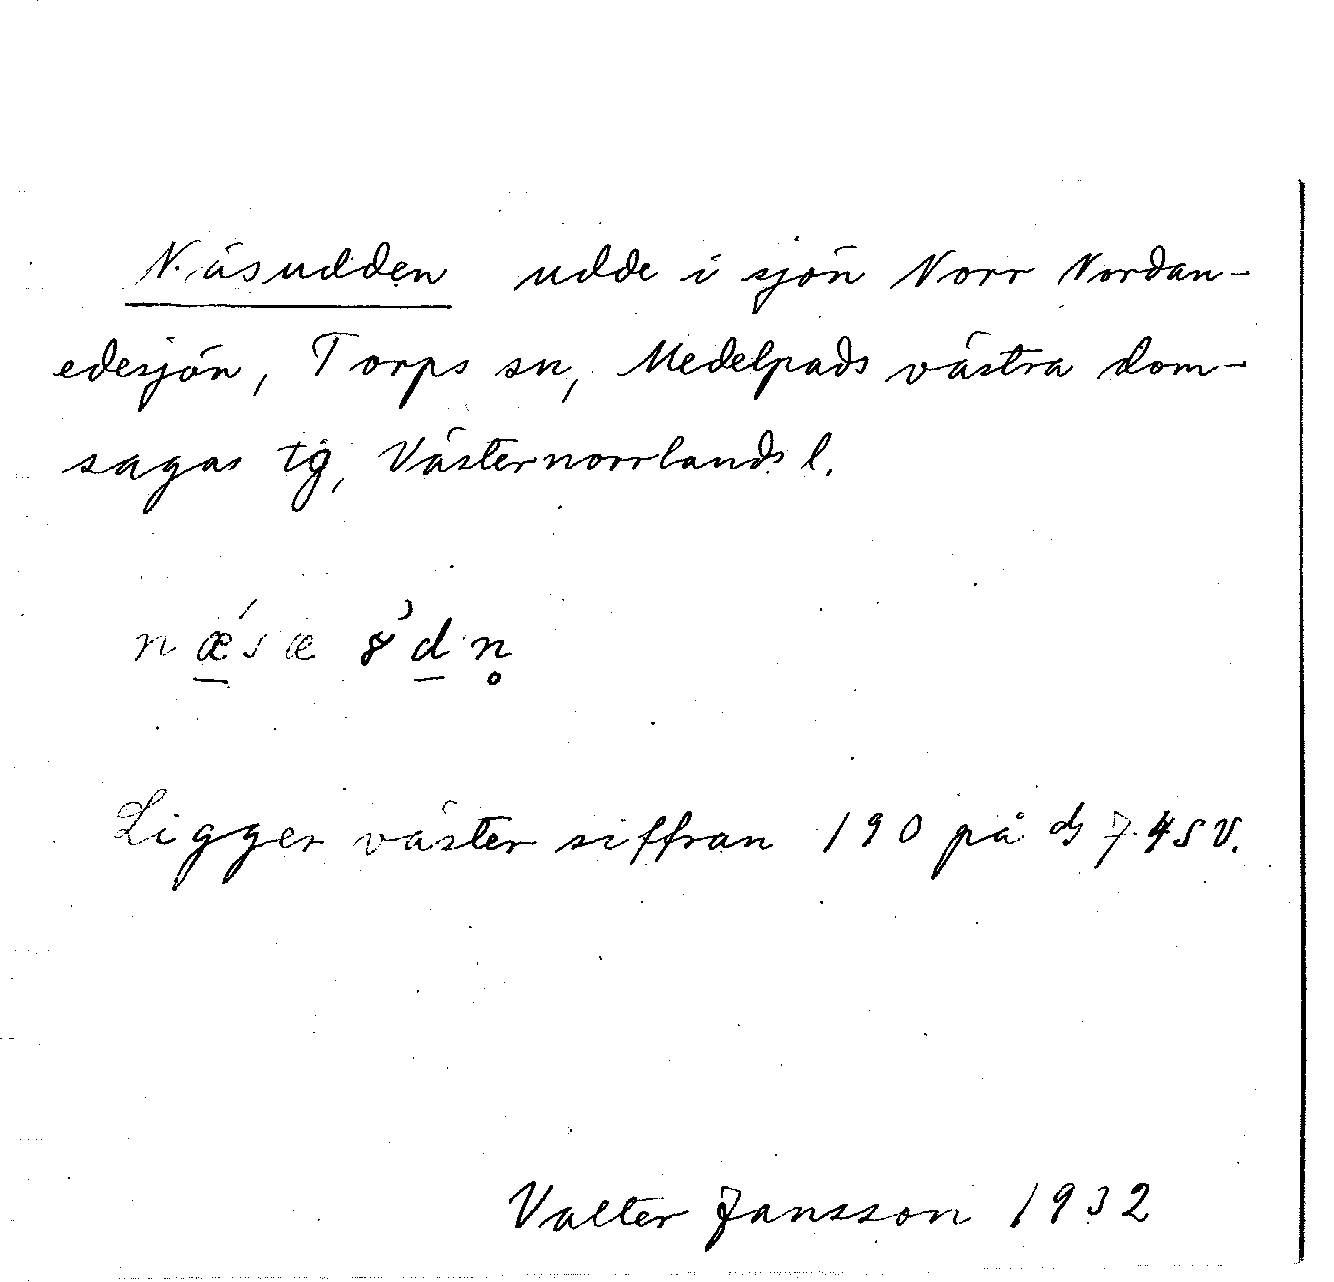 Näsudden udde i sjön Norr Nordan-
edesjön, Torps sn, Medelpads västra dom-
sagas tg, Västernorrlands l.
nǽ̱sæ 8̓ḏn̥
Ligger väster siffran 190 på 74 SV.
Valter Jansson 1932